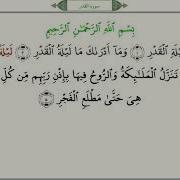 سورة القدر
بِسْمِ ٱللَّهِ ٱلرَّحْمَـٰنِ ٱلرَّحِيمِ
لَيْلَةِ ٱلْقَدْرِ ١ وَمَآ أَدْرَىٰكَ مَا لَيْلَةُ ٱلْقَدْرِ ٢ لَيْلَةُ
تَنَزَّلُ ٱلْمَلَـٰٓئِكَةُ وَٱلرُّوحُ فِيهَا بِإِذْنِ رَبِّهِم مِّن كُلِّ
هِىَ حَتَّىٰ مَطْلَعِ ٱلْفَجْرِ ٥